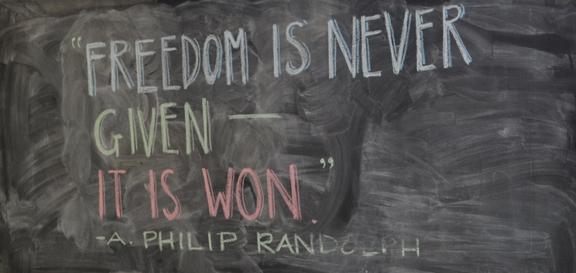 "FREEDOM IS NEVER
GIVEN —
IT IS WON."
-A. PHILIP RANDOLPH